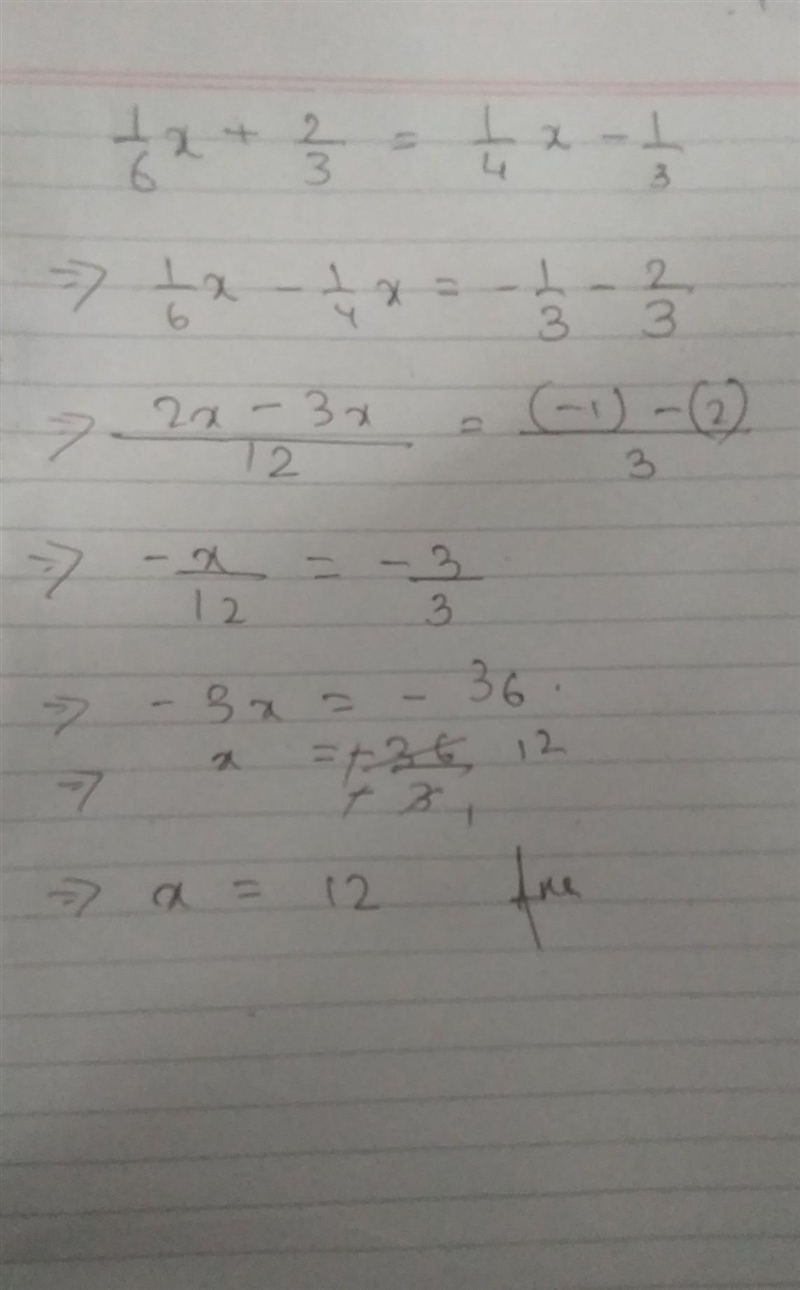 1/6 x + 2/3 = 1/4 x - 1/3
⇒ 1/6 x - 1/4 x = - 1/3 - 2/3
⇒ (2x - 3x)/12 = ((-1) - (2))/3
⇒ - x/12 = - 3/3
⇒ - 3x = - 36.
⇒ x = -36/-3 12 1
⇒ x = 12 Ans